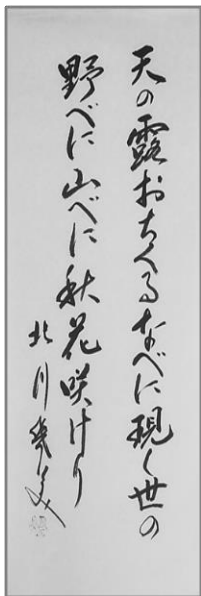 天の露おちくるなべに現く世の
野べに山べに秋花咲けり
北川